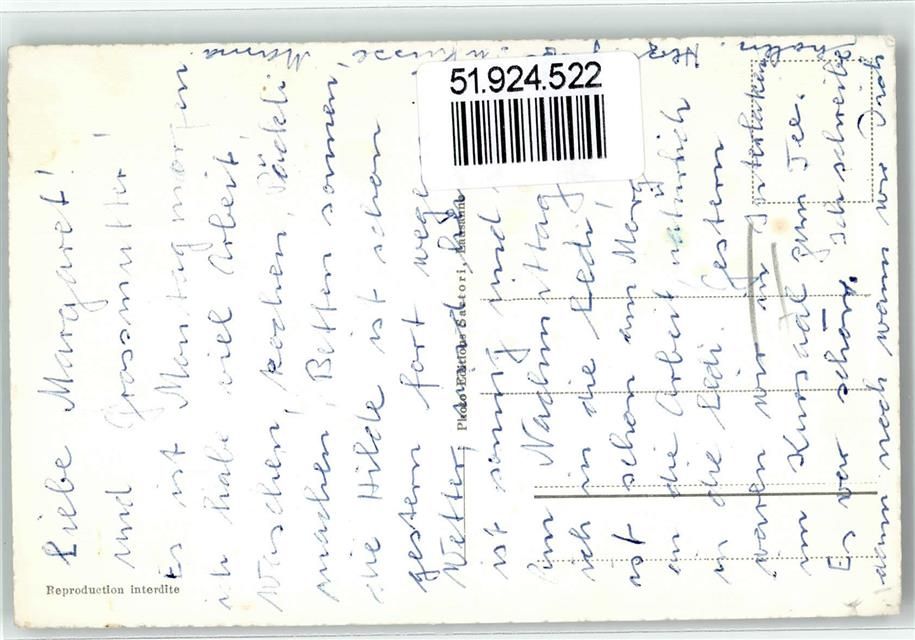 Liebe Margaret!
und Grossmutter!
Es ist Montag morgen
ich habe viel Arbeit,
Waschen, kochen, Päckli
machen, Betten sonnen,
die Hilde ist schon
gestern fort wege
Wetter,
ist sonnig und
Am Nachmittag
ich in die Ledi,
ist schon am Morg
an die Arbeit, natürlich
in die Ledi. Gestern
waren wir in Interlaken
im Kursaal zum Tee.
Es war schön. Ich schreibe
dann noch wann wir Züg
Mama
51.924.522
Photo Editions Sartori, Lausanne
Reproduction interdite